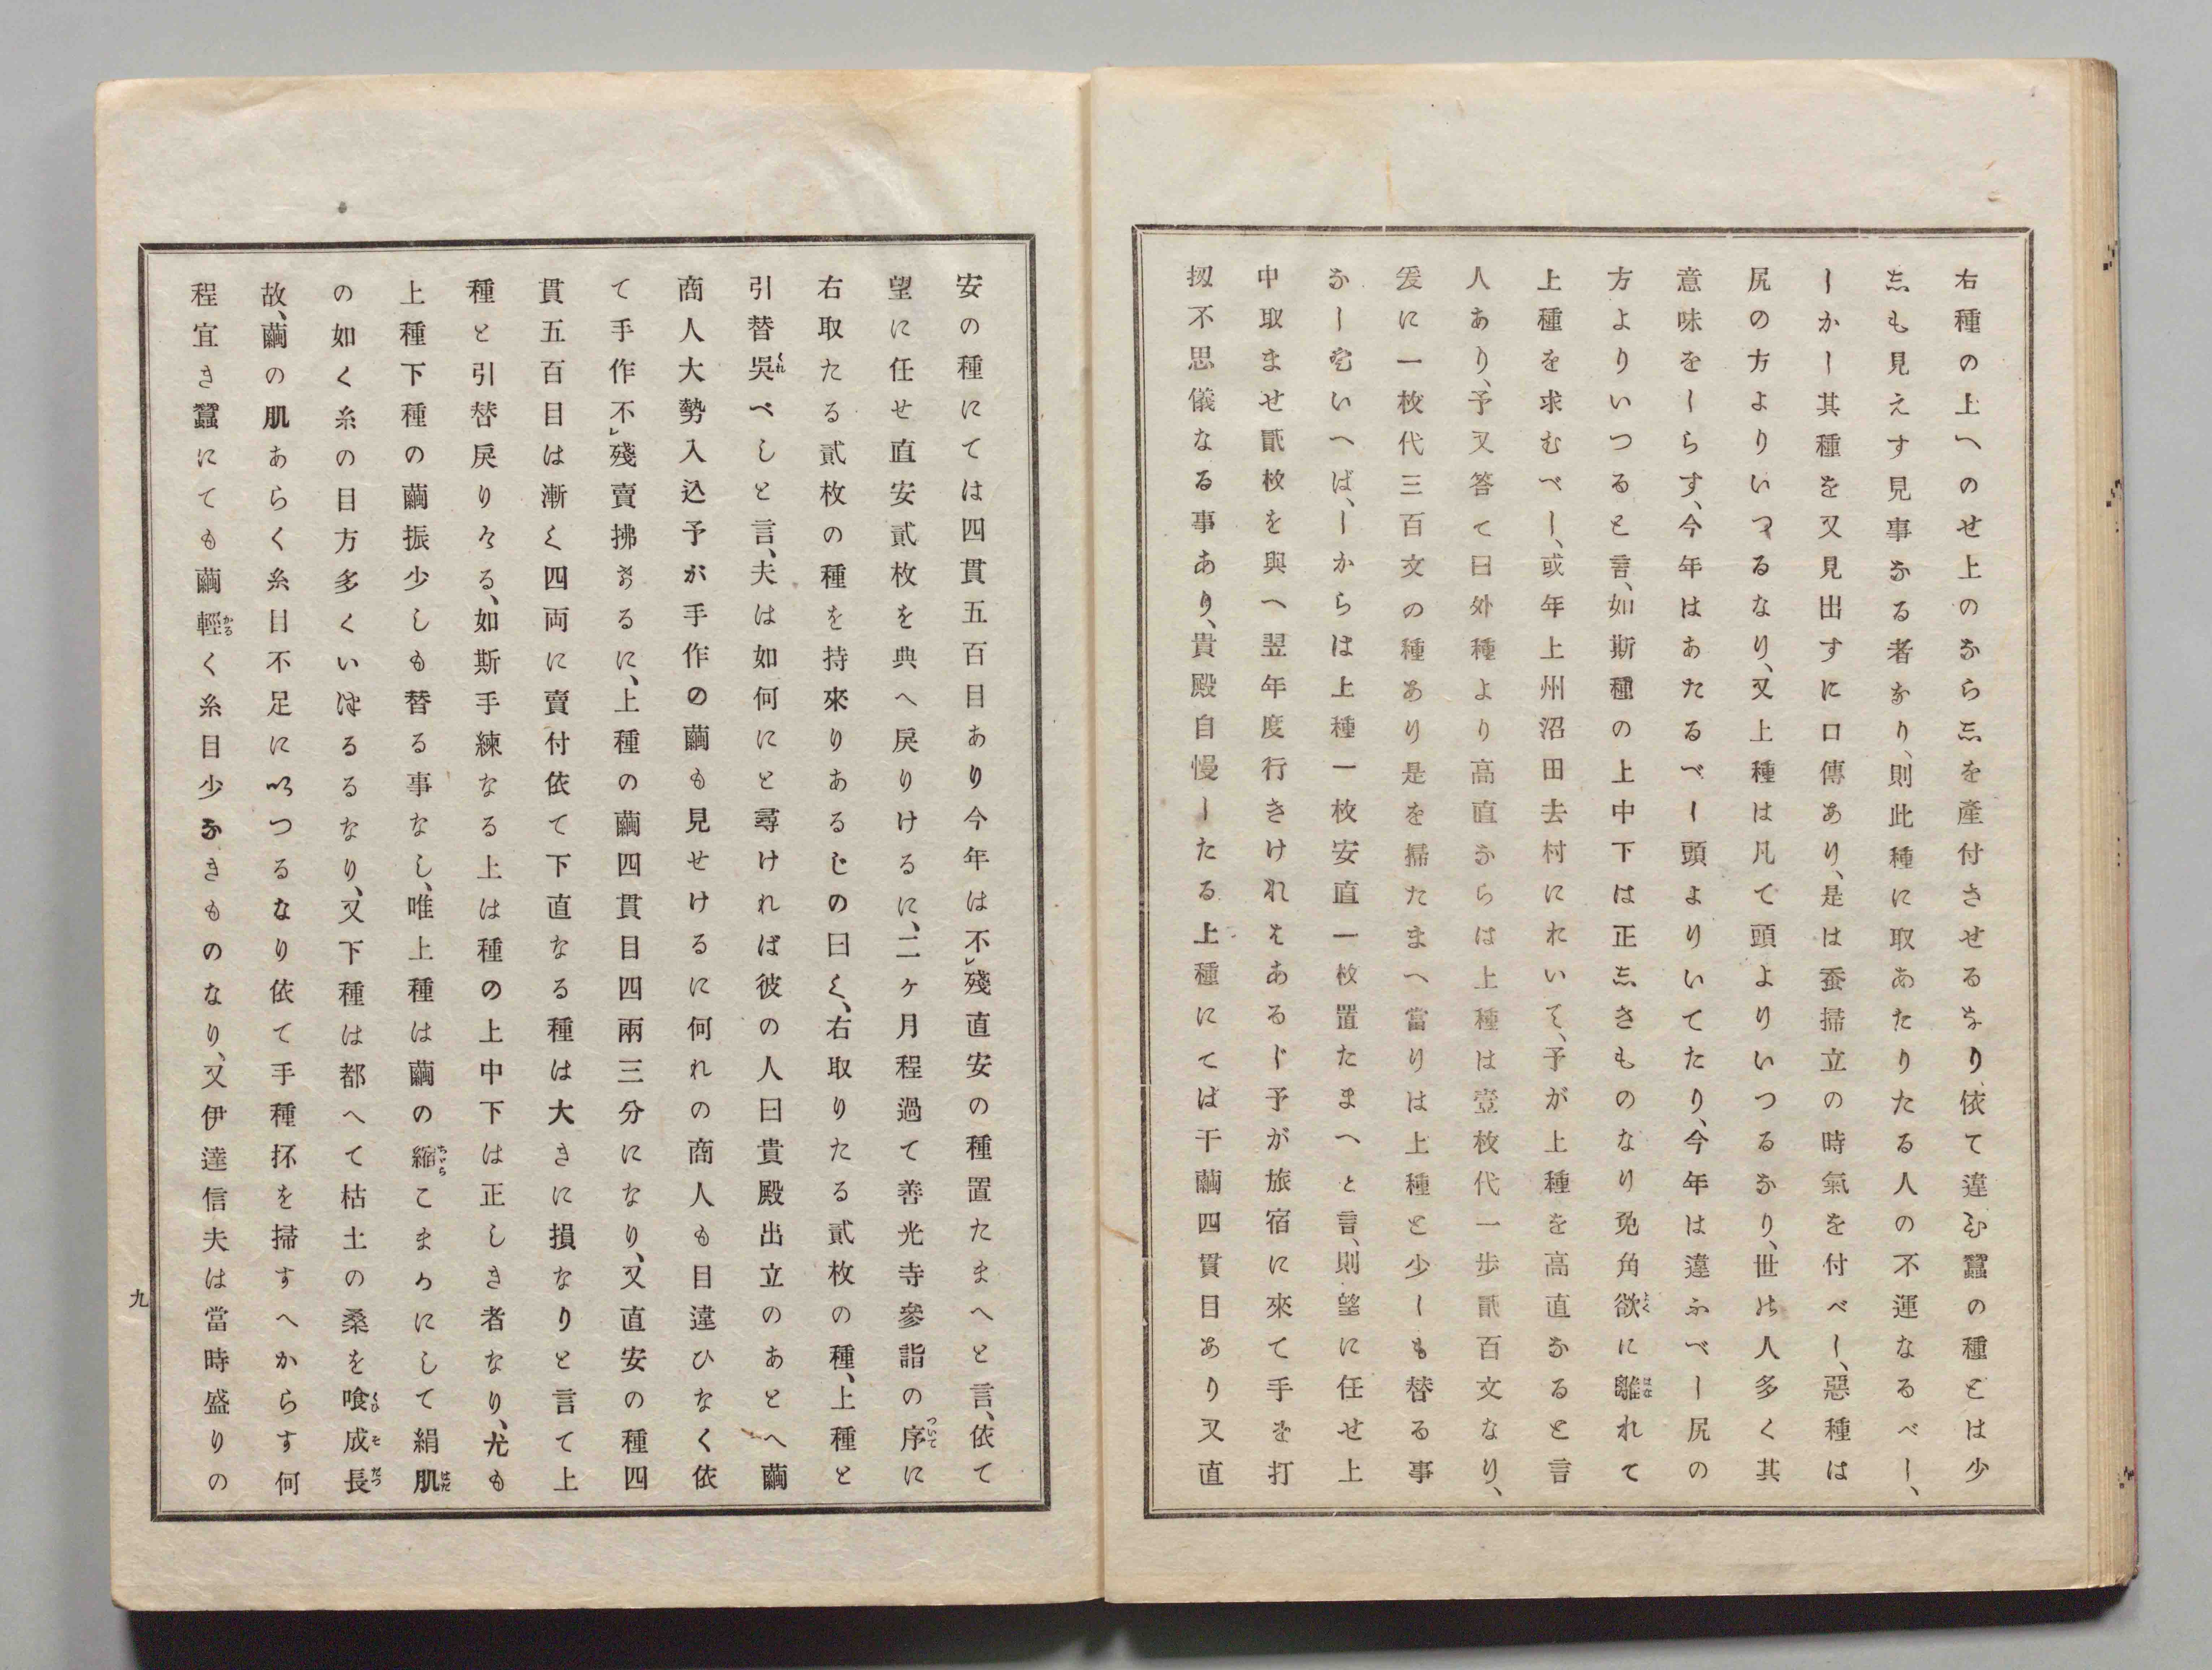 右種の上へのせ上のなら志を產付させるなり、依て違ひ蠶の種とは少
志も見えす見事なる者なり、則此種に取あたりたる人の不運なるべし、
しかし其種を又見出すに口傳あり、是は蚕掃立の時氣を付べし、惡種は
尻の方よりいつるなり、又上種は凡て頭よりいつるなり、世の人多く其
意味をしらす、今年はあたるべし頭よりいてたり、今年は違ふべし尻の
方よりいつると言、如斯種の上中下は正志きものなり免角欲よくに離はなれて
上種を求むべし、或年上州沼田去村にれいて、予が上種を高直なると言
人あり、予又答て曰外種より高直ならは上種は壹枚代一步貳百文なり、
爰に一枚代三百文の種あり是を掃たまへ當りは上種と少しも替る事
なしといへば、しからは上種一枚安直一枚置たまへと言、則望に任せ上
中取ませ貳枚を與へ翌年度行きけれはあるじ予が旅宿に來て手を打
扨不思儀なる事あり、貴殿自慢したる上種にてば干繭四貫目あり又直
安の種にては四貫五百目あり今年は不レ殘直安の種置たまへと言、依て
望に任せ直安貳枚を典へ戾りけるに、二ヶ月程過て善光寺參詣の序ついてに
右取たる貳枚の種を持來りあるじの曰く、右取りたる貳枚の種、上種と
引替吳くれべしと言、夫は如何にと尋ければ彼の人曰貴殿出立のあとへ繭
商人大勢入込予が手作の繭も見せけるに何れの商人も目違ひなく依
て手作不レ殘賣拂おるに、上種の繭四貫目四兩三分になり、又直安の種四
貫五百目は漸く四両に賣付依て下直なる種は大きに損なりと言て上
種と引替戾りける、如斯手練なる上は種の上中下は正しき者なり、尤も
上種下種の繭振少しも替る事なし、唯上種は繭の縮ちゞらこまかにして絹肌はだ
の如く糸の目方多くいはるるなり、又下種は都へて枯土の桑を喰くひ成そ長だつ
故、繭の肌あらく糸目不足にいつるなり依て手種抔を掃すへからす何
程宜き蠶にても繭輕かるく糸目少なきものなり、又伊達信夫は當時盛りの
九